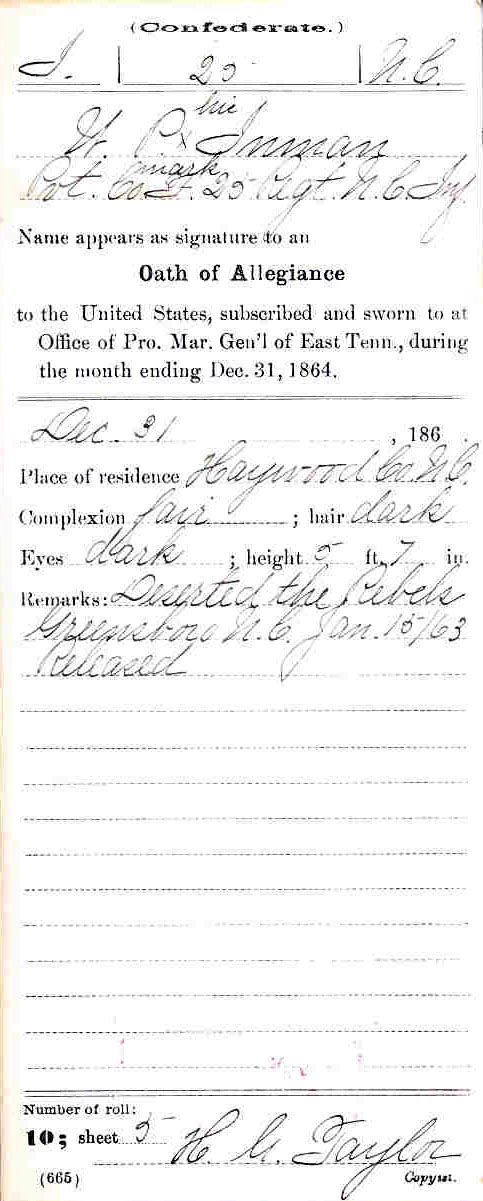 (Confederate.)
I. | 25 | N.C.
his
W. P. x Inman
mark
Pvt. Co. F. 25 Regt. N.C. Inf.
Name appears as signature to an
Oath of Allegiance
to the United States, subscribed and sworn to at
Office of Pro. Mar. Gen'l of East Tenn., during
the month ending Dec. 31, 1864.
Dec. 31 , 186 .
Place of residence Haywood Co. N.C.
Complexion fair ; hair dark
Eyes dark ; height 5 ft. 7 in.
Remarks: Deserted the Rebels
Greensboro N.C. Jan. 15/63
Released
Number of roll:
10; sheet 5 H. G. Taylor
(665) Copyist.